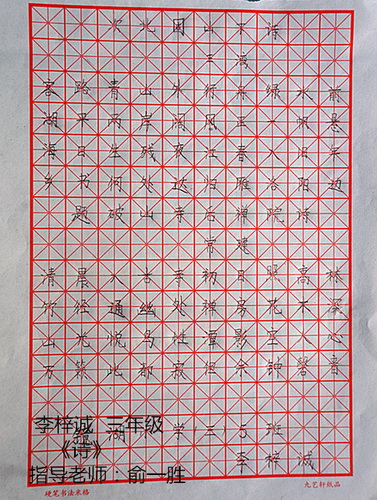 次北固山下诗
王湾
客路青山外行舟绿水前
湖平两岸阔风正一帆悬
海日生残夜江春入旧年
乡书何处达归雁洛阳边
题破山寺后禅院诗
常建
清晨入古寺初日照高林
竹径通幽处禅房花木深
山光悦鸟性潭影空人心
万籁此都寂但余钟磬音
李梓诚 三年级
湖 学三 5 班
《诗》
李梓诚
指导老师：俞一胜
硬笔书法米格 九艺轩纸品